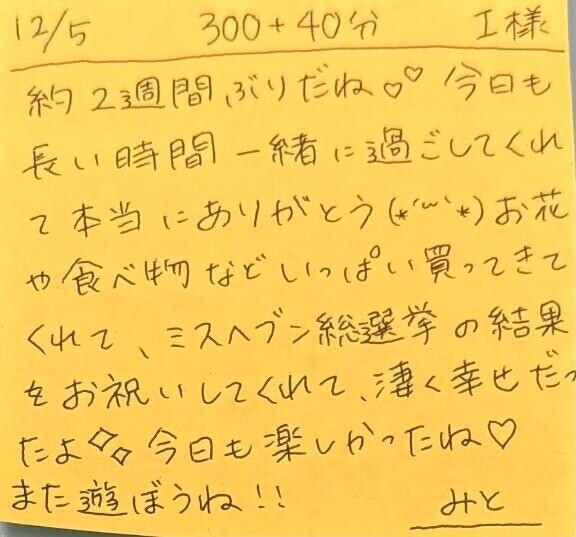 12/5 300+40分 I様
約2週間ぶりだね♡♡ 今日も
長い時間一緒に過ごしてくれ
て本当にありがとう(*´ω`*)お花
や食べ物などいっぱい買ってきて
くれて、ミスヘブン総選挙の結果
をお祝いしてくれて、凄く幸せだっ
たよ✧✧今日も楽しかったね♡
また遊ぼうね!!
みと